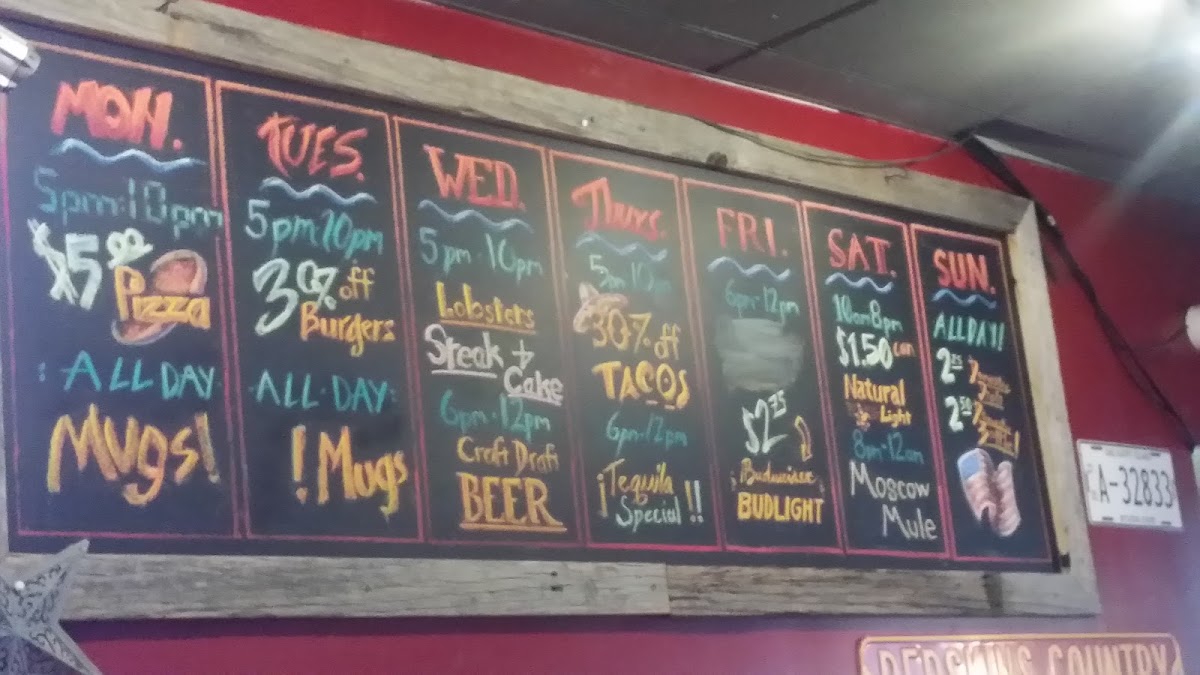 MON.
5pm-10pm
$5.00
Pizza
ALL DAY
Mugs!
TUES.
5pm-10pm
30% off
Burgers
ALL DAY
! Mugs
WED.
5pm-10pm
Lobsters
Steak +
Cake
6pm-12pm
Craft Draft
BEER
Thurs.
5pm-10pm
30% off
TACOS
6pm-12pm
¡Tequila
Special!!
FRI.
6pm-12pm
$2.75
Budweiser
BUDLIGHT
SAT.
10am 8pm
$1.50 can
Natural
Light
8pm-12am
Moscow
Mule
SUN.
ALL DAY!
2.25
2.50
A-32833
REDSKINS COUNTRY